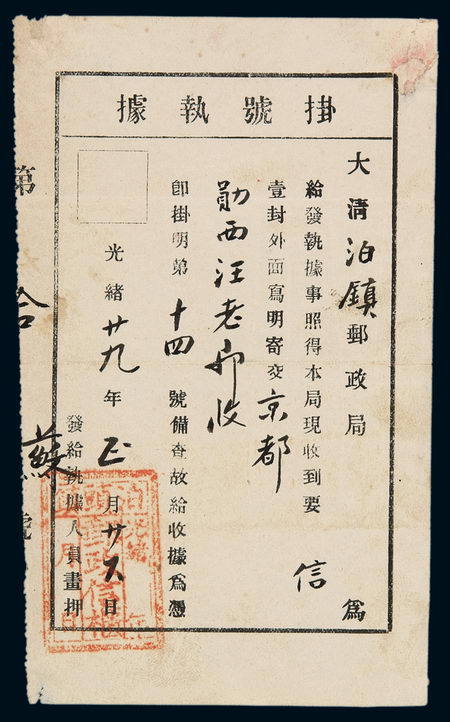 掛號執據
大清泊鎮郵政局為
給發執據事照得本局現收到要信
壹封外面寫明寄交京都
勛西汪老爺收
即掛明第十四號備查故給收據為憑
光緒廿九年正月廿六日
發給執據人員畫押
蘇
第
號